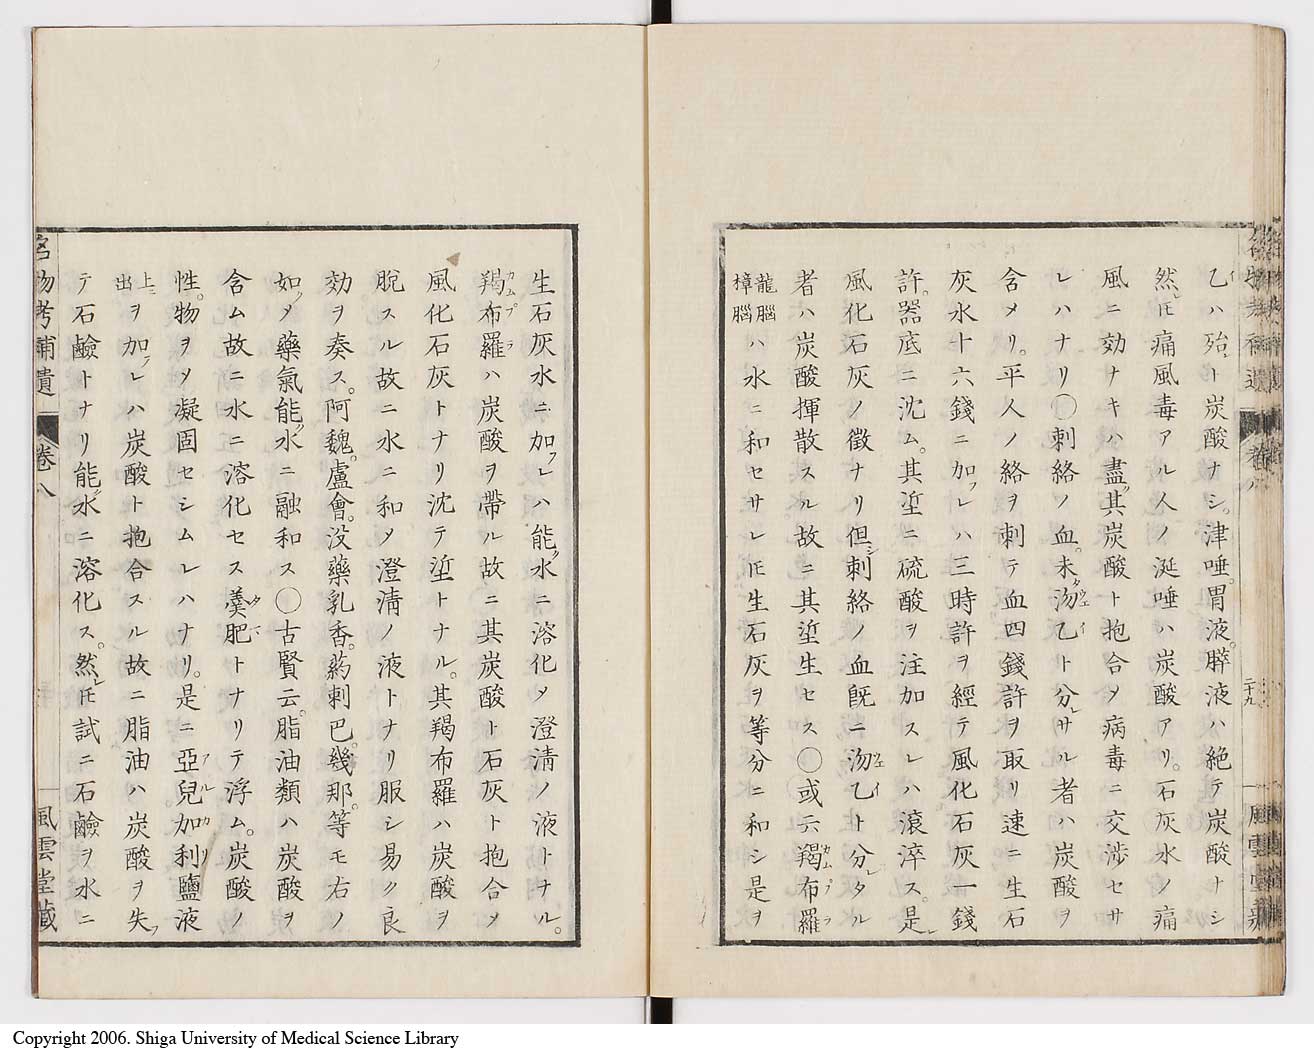 乙ハ殆ト炭酸ナシ。津唾。胃液。膵液ハ絶テ炭酸ナシ
然レ𪜈痛風毒アル人ノ涎唾ハ炭酸アリ。石灰水ノ痛
風ニ効ナキハ盡ク其炭酸ト抱合メ病毒ニ交渉セサ
レハナリ〇刺絡ノ血。未タ沕乙ト分レサル者ハ炭酸ヲ
含メリ。平人ノ絡ヲ刺テ血四錢許ヲ取リ速ニ生石
灰水十六錢ニ加フレハ三時許ヲ經テ風化石灰一錢
許。器底ニ沈ム。其埿ニ硫酸ヲ注加スレハ滾淬ス。是レ
風化石灰ノ徴ナリ但シ刺絡ノ血既ニ沕乙ト分レタル
者ハ炭酸揮散スル故ニ其埿生セス〇或云羯布羅
龍腦樟腦ハ水ニ和セサレ𪜈生石灰ヲ等分ニ和シ是ヲ
名物考補遺
卷八
二十九
風雲堂藏
生石灰水ニ加フレハ能ク水ニ溶化メ澄清ノ液トナル。
羯布羅ハ炭酸ヲ帶ル故ニ其炭酸ト石灰ト抱合メ
風化石灰トナリ沈テ埿トナル。其羯布羅ハ炭酸ヲ
脫スル故ニ水ニ和メ澄清ノ液トナリ服シ易ク良
効ヲ奏ス。阿魏。盧會。没藥乳香。葯剌巴。幾那。等モ右ノ
如メ藥氣能ク水ニ融和ス〇古賢云。脂油類ハ炭酸ヲ
含ム故ニ水ニ溶化セス羹肥トナリテ浮ム。炭酸ノ
性。物ヲメ凝固セシムレハナリ。是ニ亞兒加利鹽液
上ニ出ヲ加フレハ炭酸ト抱合スル故ニ脂油ハ炭酸ヲ失フ
テ石鹼トナリ能ク水ニ溶化ス。然レ𪜈試ニ石鹼ヲ水ニ
名物考補遺
卷八
風雲堂藏
Copyright 2006. Shiga University of Medical Science Library